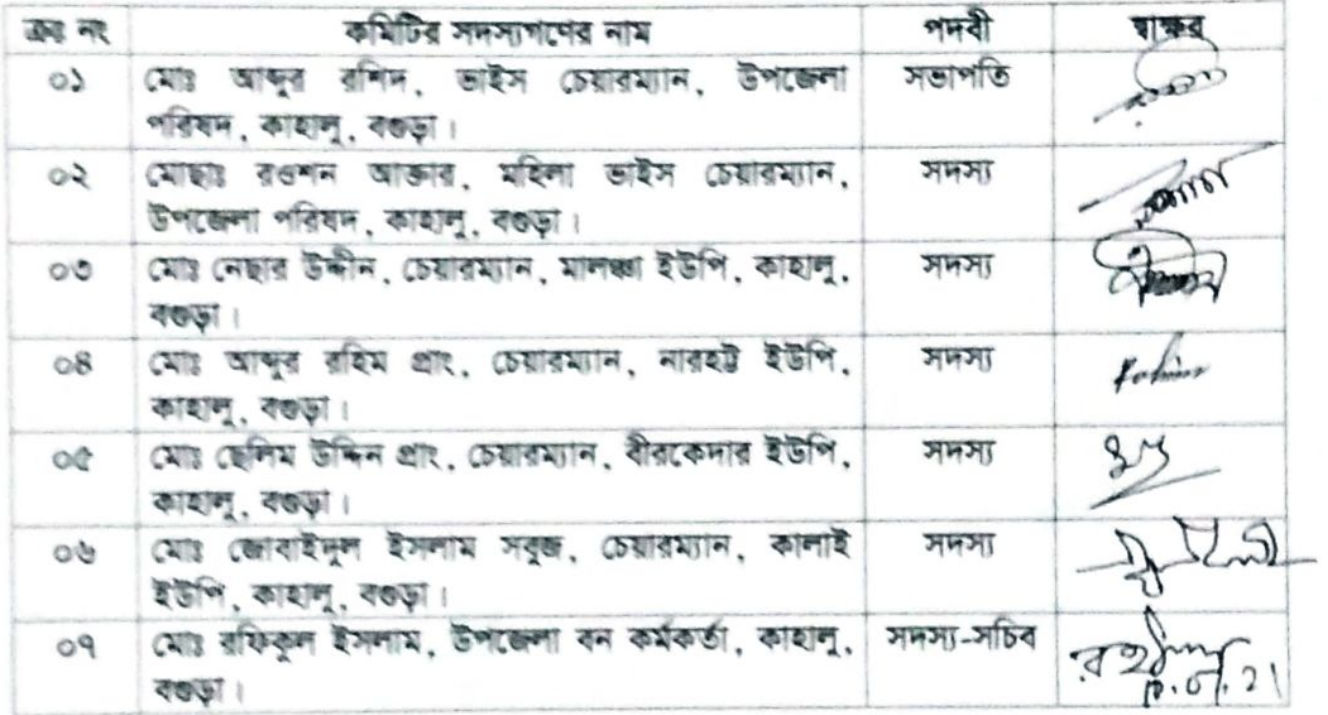 ক্রঃ নং কমিটির সদস্যগণের নাম পদবী স্বাক্ষর
০১ মোঃ আব্দুর রশিদ, ভাইস চেয়ারম্যান, উপজেলা সভাপতি
পরিষদ, কাহালু, বগুড়া।
০২ মোছাঃ রওশন আক্তার, মহিলা ভাইস চেয়ারম্যান, সদস্য
উপজেলা পরিষদ, কাহালু, বগুড়া।
০৩ মোঃ নেছার উদ্দীন, চেয়ারম্যান, মালঞ্চা ইউপি, কাহালু, সদস্য
বগুড়া।
০৪ মোঃ আব্দুর রহিম প্রাং, চেয়ারম্যান, নারহট্ট ইউপি, সদস্য
কাহালু, বগুড়া।
০৫ মোঃ ছেলিম উদ্দিন প্রাং, চেয়ারম্যান, বীরকেদার ইউপি, সদস্য
কাহালু, বগুড়া।
০৬ মোঃ জোবাইদুল ইসলাম সবুজ, চেয়ারম্যান, কালাই সদস্য
ইউপি, কাহালু, বগুড়া।
০৭ মোঃ রফিকুল ইসলাম, উপজেলা বন কর্মকর্তা, কাহালু, সদস্য-সচিব
বগুড়া।